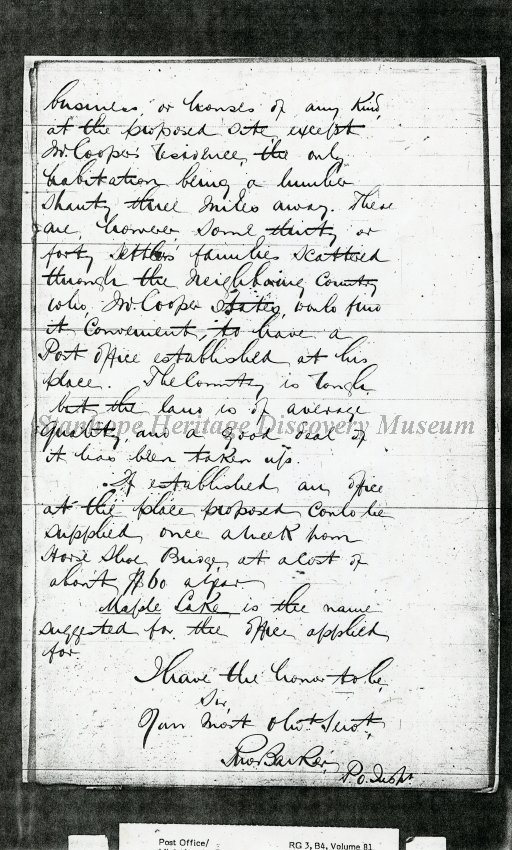 business, or houses of any kind,
at the proposed site, except
Mr. Cooper's residence, the only
habitation being a lumber
shanty three miles away. There
are, however some thirty or
forty settlers' families scattered
through the neighboring country
who Mr. Cooper states, would find
it convenient, to have a
Post office established at his
place. The Country is rough
but the land is of average
Stanhope Heritage Discovery Museum
quality, and a good deal of
it has been taken up.
If established an office
at the place proposed could be
supplied once a week from
Horse Shoe Bridge at a cost of
about $60 a year.
Maple Lake is the name
suggested for the office applied
for
I have the honor to be,
Sir,
Your most obt. Servt.
Barker
P.O. Inspr.
Post Office/
RG 3, B4, Volume 81